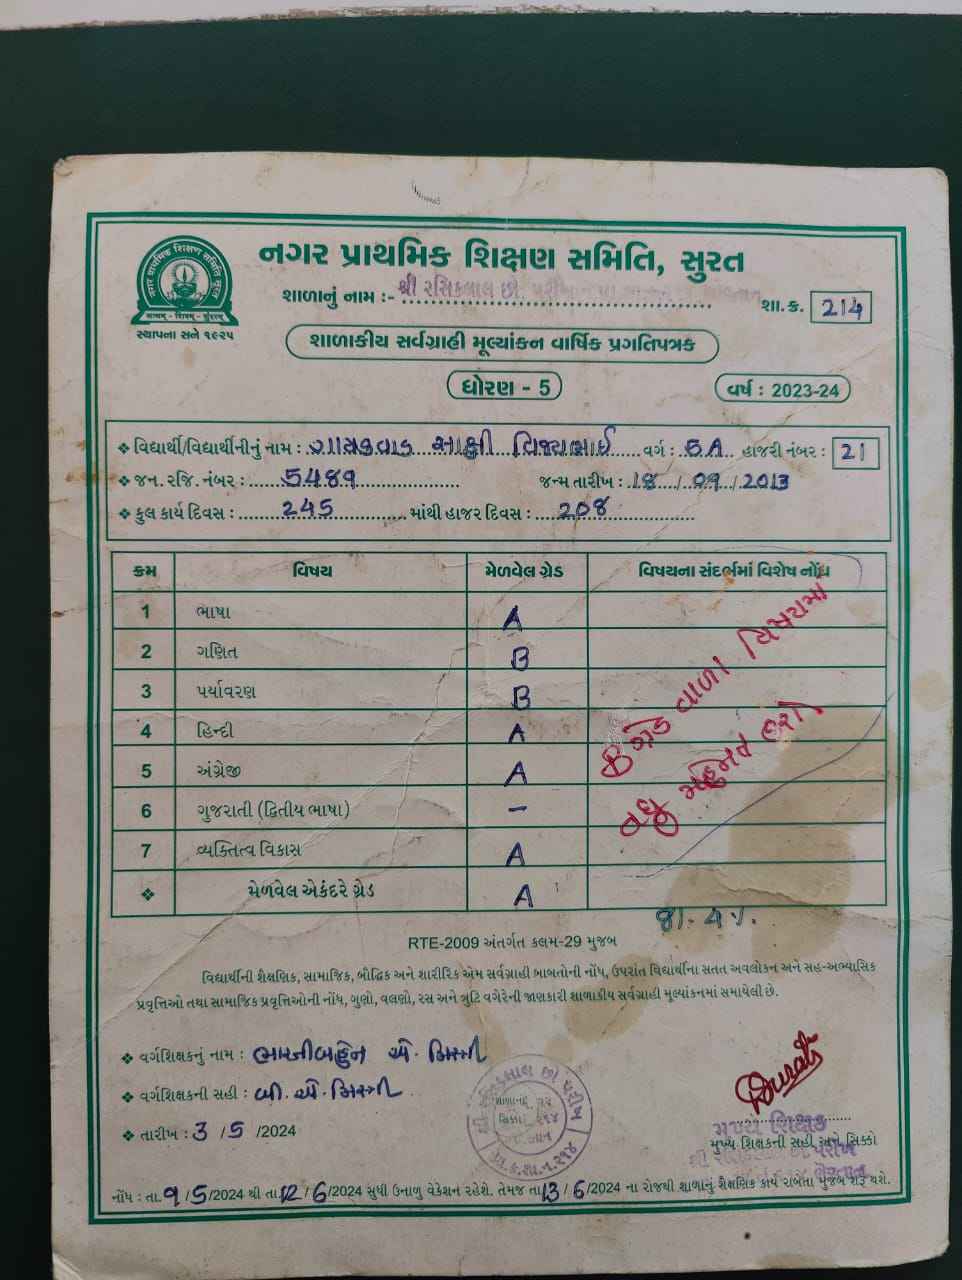 નગર પ્રાથમિક શિક્ષણ સમિતિ સુરત
સત્યમ્ - શિવમ્ - સુંદરમ્
સ્થાપના સને ૧૯૨૫
નગર પ્રાથમિક શિક્ષણ સમિતિ, સુરત
શાળાનું નામ :- શ્રી રસિકલાલ છો. પરીખ શા.ક્ર. 214
શાળાકીય સર્વગ્રાહી મૂલ્યાંકન વાર્ષિક પ્રગતિપત્રક
ધોરણ - 5 વર્ષ : 2023-24
❖ વિદ્યાર્થી/વિદ્યાર્થીનીનું નામ : ગાયકવાડ વિજયભાઈ વર્ગ : 5A હાજરી નંબર : 21
❖ જન. રજિ. નંબર : 5489 જન્મ તારીખ : 18 / 09 / 2013
❖ કુલ કાર્ય દિવસ : 245 માંથી હાજર દિવસ : 208
ક્રમ વિષય મેળવેલ ગ્રેડ વિષયના સંદર્ભમાં વિશેષ નોંધ
1 ભાષા A
2 ગણિત B
3 પર્યાવરણ B
4 હિન્દી A
5 અંગ્રેજી A
6 ગુજરાતી (દ્વિતીય ભાષા) –
7 વ્યક્તિત્વ વિકાસ A
❖ મેળવેલ એકંદરે ગ્રેડ A
B ગ્રેડ વાળા વિષયમાં
વધુ મહેનત કરો
81.4%
RTE-2009 અંતર્ગત કલમ-29 મુજબ
વિદ્યાર્થીની શૈક્ષણિક, સામાજિક, બૌદ્ધિક અને શારીરિક એમ સર્વગ્રાહી બાબતોની નોંધ, ઉપરાંત વિદ્યાર્થીના સતત અવલોકન અને સહ-અભ્યાસિક
પ્રવૃત્તિઓ તથા સામાજિક પ્રવૃત્તિઓની નોંધ, ગુણો, વલણો, રસ અને ત્રુટિ વગેરેની જાણકારી શાળાકીય સર્વગ્રાહી મૂલ્યાંકનમાં સમાયેલી છે.
❖ વર્ગશિક્ષકનું નામ : એ. મિસ્ત્રી
❖ વર્ગશિક્ષકની સહી : બી. એ. મિસ્ત્રી
❖ તારીખ : 3 / 5 /2024
શ્રી રસિકલાલ છો પરીખ
પ્રા.ક.શા.નં.૨૧૪
મુખ્ય શિક્ષક
મુખ્ય શિક્ષકની સહી અને સિક્કો
નોંધ : તા. 9 /5/2024 થી તા 12 / 6 /2024 સુધી ઉનાળુ વેકેશન રહેશે. તેમજ તા 13 / 6 /2024 ના રોજથી શાળાનું શૈક્ષણિક કાર્ય રાબેતા મુજબ શરૂ થશે.